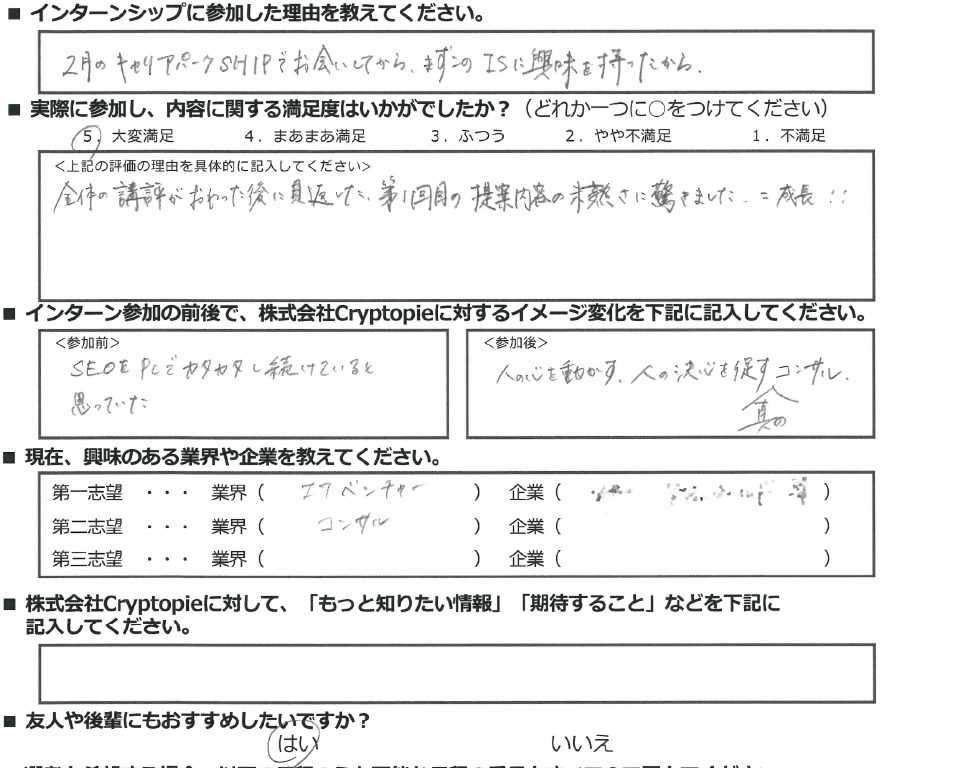 ■ インターンシップに参加した理由を教えてください。
2月のキャリアパークSHIPでお会いしてから、まずこのISに興味を持ったから。
■ 実際に参加し、内容に関する満足度はいかがでしたか？（どれか一つに○をつけてください）
5．大変満足　4．まあまあ満足　3．ふつう　2．やや不満足　1．不満足
<上記の評価の理由を具体的に記入してください>
全体の講評がおわった後に見返した、第1回目の提案内容の未熟さに驚きました。＝成長！！
■ インターン参加の前後で、株式会社Cryptopieに対するイメージ変化を下記に記入してください。
<参加前>
SEOをPCでカタカタし続けていると
思っていた
<参加後>
人の心を動かす、人の決心を促すコンサル。
真の
■ 現在、興味のある業界や企業を教えてください。
第一志望 ・・・ 業界（ ITベンチャー ） 企業（ ）
第二志望 ・・・ 業界（ コンサル ） 企業（ ）
第三志望 ・・・ 業界（ ） 企業（ ）
■ 株式会社Cryptopieに対して、「もっと知りたい情報」「期待すること」などを下記に
記入してください。
■ 友人や後輩にもおすすめしたいですか？
はい　いいえ